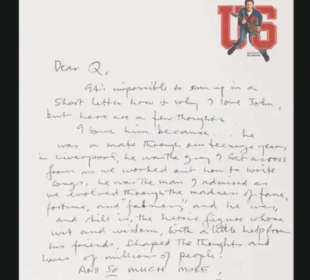 US
Dear Q,
It's impossible to sum up in a
short letter how & why I love John,
but here are a few thoughts
I love him because... he
was a mate through our teenage years
in Liverpool, he was the guy I sat across
from as we worked out how to write
songs, he was the man I admired as
we evolved through the madness of fame,
fortune, and "fabness", and he was,
and still is, the heroic figure whose
wit and wisdom, with a little help from
his friends, shaped the thoughts and
lives of millions of people.
AND SO MUCH MORE!